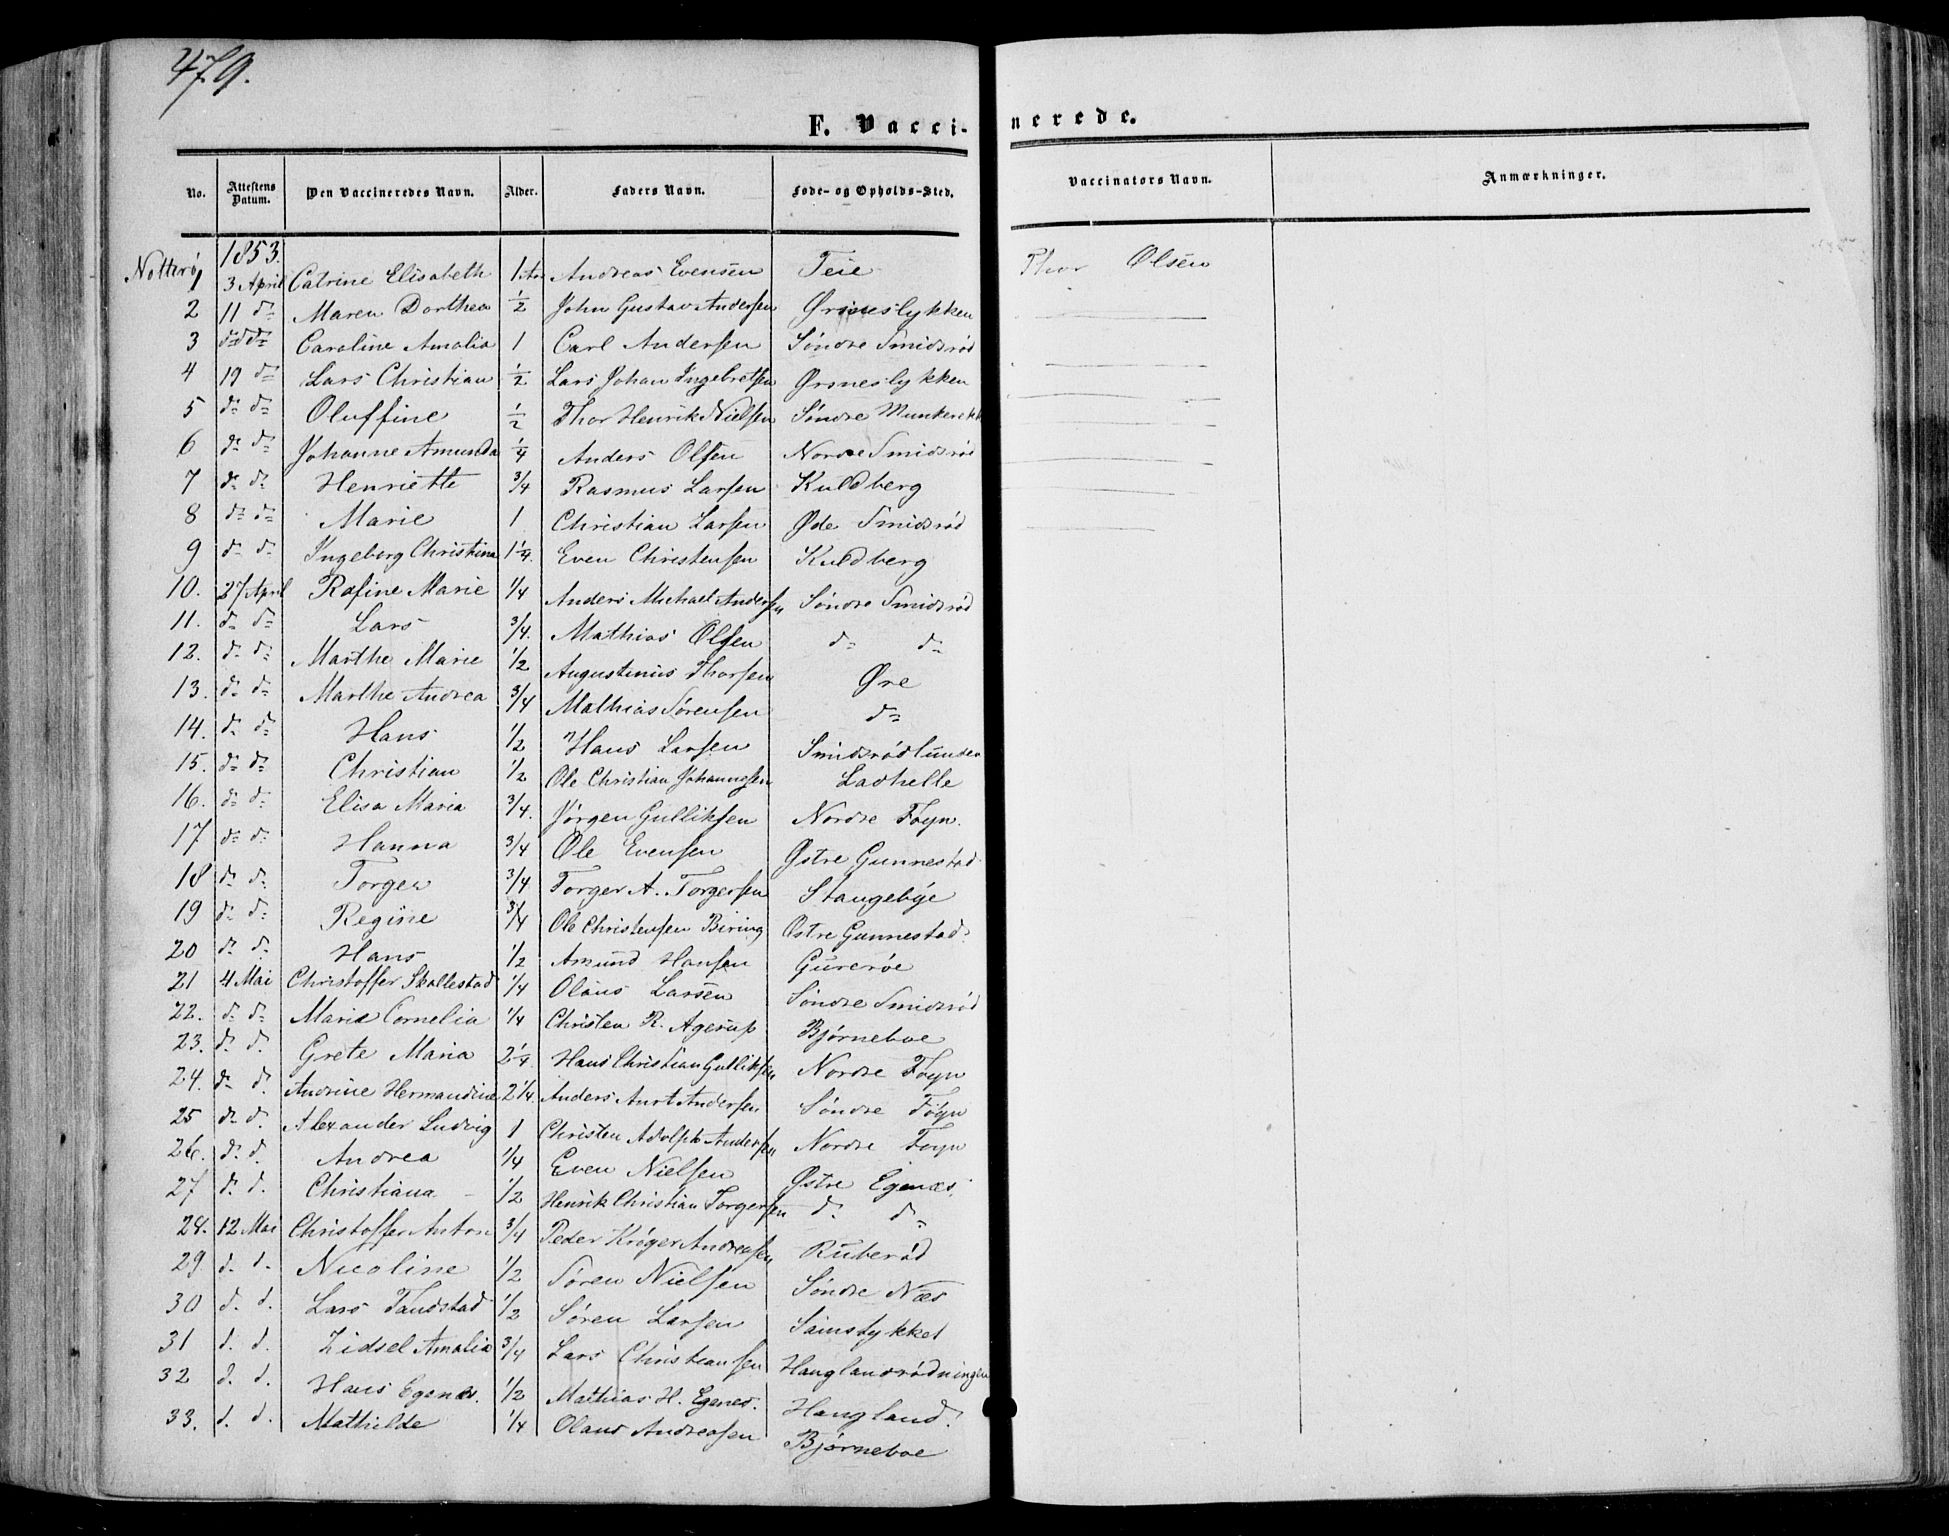 479.
F. Vaccinerede.
No. Attestens Datum. Den Vaccineredes Navn. Alder. Faders Navn. Føde- og Opholds-Sted. Vaccinators Navn. Anmærkninger.
Nøtterø 1853.
1 3 April Catrine Elisabeth 1 Andreas Evensen Teie Thor Olsen
2 11 d= Maren Dorthea 1/2 John Gustav Andersen Ørsneslykken
3 d= d= Caroline Amalia 1 Carl Andersen Søndre Smidsrød
4 19 d= Lars Christian 1/2 Lars Johan Ingebretsen Ørsneslykken
5 d= d= Oluffine 1/2 Thor Henrik Nielsen Søndre
6 d= d= Johanne Amunda 1/4 Anders Olsen Nordre Smidsrød
7 d= d= Henriette 3/4 Rasmus Larsen Kuldberg
8 d= d= Marie 1 Christian Larsen Øde Smidsrød
9 d= d= Ingeborg Christina 1 1/4 Even Christensen Kuldberg
10. 27 April Rafine Marie 1/4 Anders Michael Andersen Søndre Smidsrød
11. d= d= Lars 3/4. Mathias Olsen d= d=
12. d= d= Marthe Marie 1/2 Augustinus Thorsen Øre
13. d= d= Marthe Andrea 3/4 Mathias Sørensen d=
14. d= d= Hans 1/2 Hans Larsen Smidsrødlunden
15. d= d= Christian 1/2 Ole Christian Johannesen Ladhelle
16. d= d= Elisa Maria 3/4. Jørgen Gulliksen Nordre Føyn.
17 d= d= Hanna 3/4 Ole Evensen Østre Gunnestad
18 d= d= Torger 3/4 Torger A. Torgersen Stangebye
19 d= d= Regine 3/4 Ole Christensen Biring Østre Gunnestad.
20 d= d= Hans 1/2 Amund Hansen
21 4 Mai Christoffer Skallestad 1/4 Olaus Larsen Søndre Smidsrød
22. d= d= Marie Cornelia 1/4 Christen R. Agerup Bjørneboe
23. d= d. Grete Maria 2 1/4 Hans Christian Gulliksen Nordre Føyn
24. d= d. Andrine Hermandine 2 1/4. Anders Anrt Andersen Søndre Føyn
25 d= d. Alexander Ludvig 1 Christen Adolph Andersen Nordre Foyn
26. d= d. Andrea 1/4 Even Nielsen Østre Egenæs.
27 d. d. Christiana 1/2 Henrik Christian Torgersen d. d=
28. 12 Mai Christoffer Anton 3/4 Peder Krøger Andreasen Ruberød
29. d. d. Nicoline 1/2 Søren Nielsen Søndre Næs
30 d. d. Lars Tandstad 1/2 Søren Larsen
31 d. d. Zidsel Amalia 3/4 Lars Christiansen Hauglandsrødningen
32 d. d. Hans Egenæs. 1/2 Mathias H. Egenes. Haugland.
33. d. d. Mathilde 1/4 Olaus Andreasen Bjørneboe